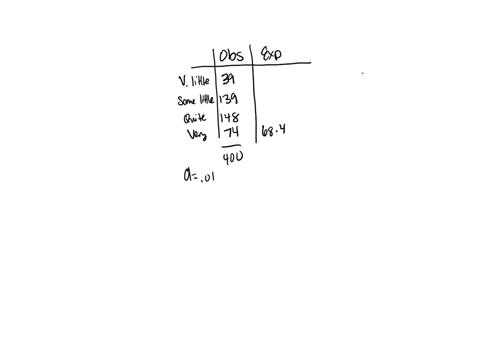 Obs Exp
V. little 39
Some little 139
Quite 148
Very 74 68.4
400
α=.01